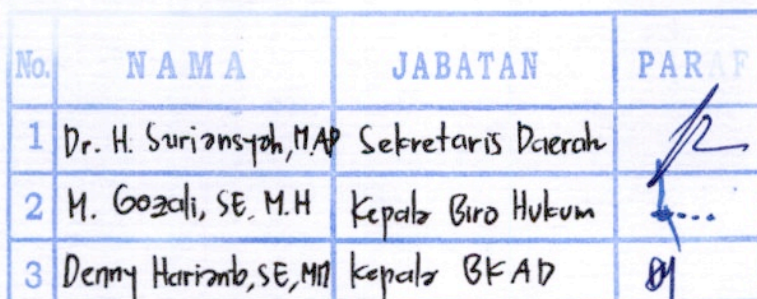 No. NAMA JABATAN PARAF
1 Dr. H. Suriansyah, M.AP Sekretaris Daerah
2 M. Gozali, SE, M.H Kepala Biro Hukum
3 Denny Harianto, SE, MM Kepala BKAD